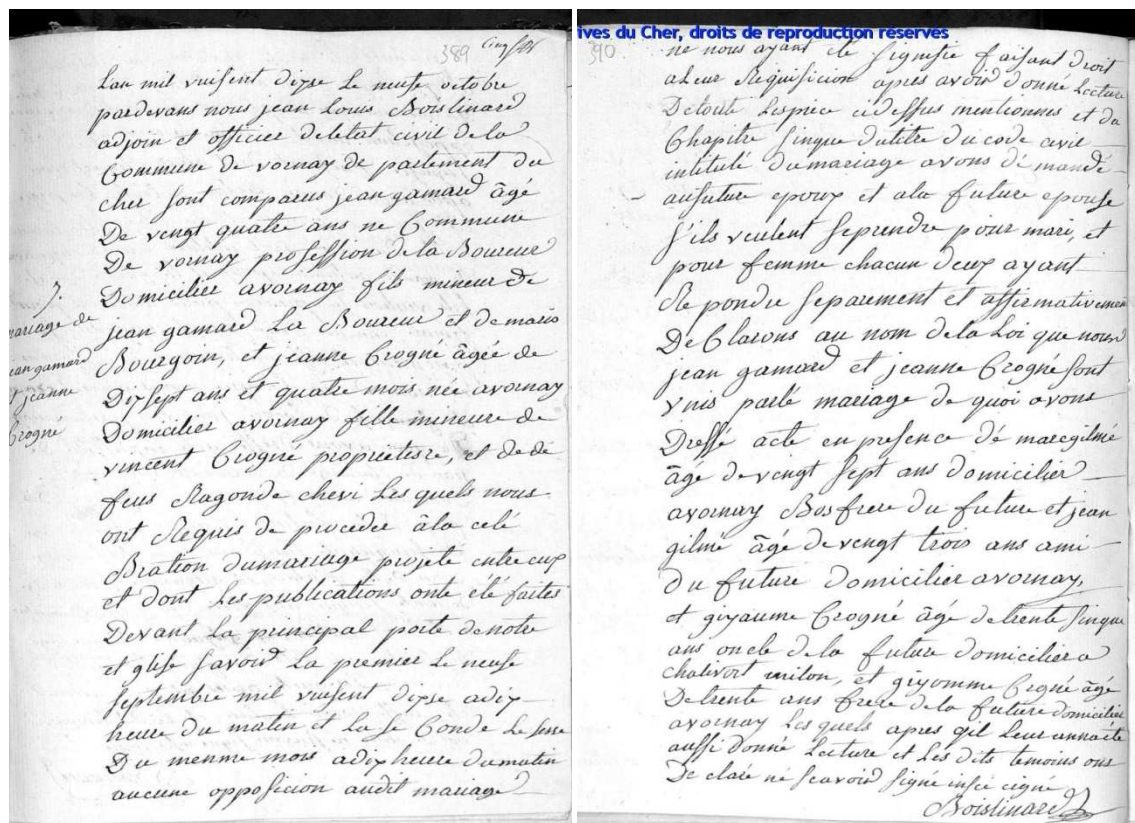 389
Lan mil vuisent dixse Le neufe octobre
pardevans nous jean Louis Boistinard
adjoin et officier deletat civil de la
Commune de vornay de partement du
cher sont comparus jean gamard âgé
De vengt quatre ans ne Commune
De vornay profession de la Boureur
Domicilier avornay fils mineur de
jean gamard La Boureur et de marie
Bourgoin, et jeanne Crogné âgée de
Dixsept ans et quatre mois née avornay
Domicilier avornay fille mineure de
vincent Crogné propriétère, et de dé
feus Ragonde chevr Les quels nous
ont Requis de procéder âla célé
Bration dumariage projeté entre eux
et dont Les publications onte été faites
Devant La principal porte denotre
et glise savoir La premier Le neufe
septembre mil vuisent dixse adix
heure du matin et La se Conde Le sense
Du menme mois adix heure dumatin
aucune opposicion audit mariage
7.
mariage de
jean gamard
et jeanne
Crogné
ives du Cher, droits de reproduction réservés
390
ne nous ayant été signifié faisant droit
aLeur Requisicion apres avoir donné Lecture
Detoute Lespice cidessus mentionnes et du
Chapitre sinque dutitre du code civil
intitulé dumariage avons dé mandé
aufuture epoux et ala future epouse
s'ils veulent seprendre pour mari, et
pour femme chacun deux ayant
Repondu séparément et affirmativement
DeClarons au nom dela Loi que nous
jean gamard et jeanne Crogné sont
vnis parle mariage de quoi avons
Dressé acte en presence dé maregilmé
âgé de vengt sept ans domicilier
avornay Bosfrere du future et jean
gilmé âgé de vengt trois ans ami
du future domicilier avornay,
et giyaume Crogné âgé detrente sinque
ans oncle dela future domicilier a
chalivort milon, et giyomme Crogné âgé
Detrente ans frere dela future domicilier
avornay Les quels apres qil Leur annaété
aussi donné Lecture et Les dits témoins ons
De claré né scavoir signé insie cigné
Boistinard